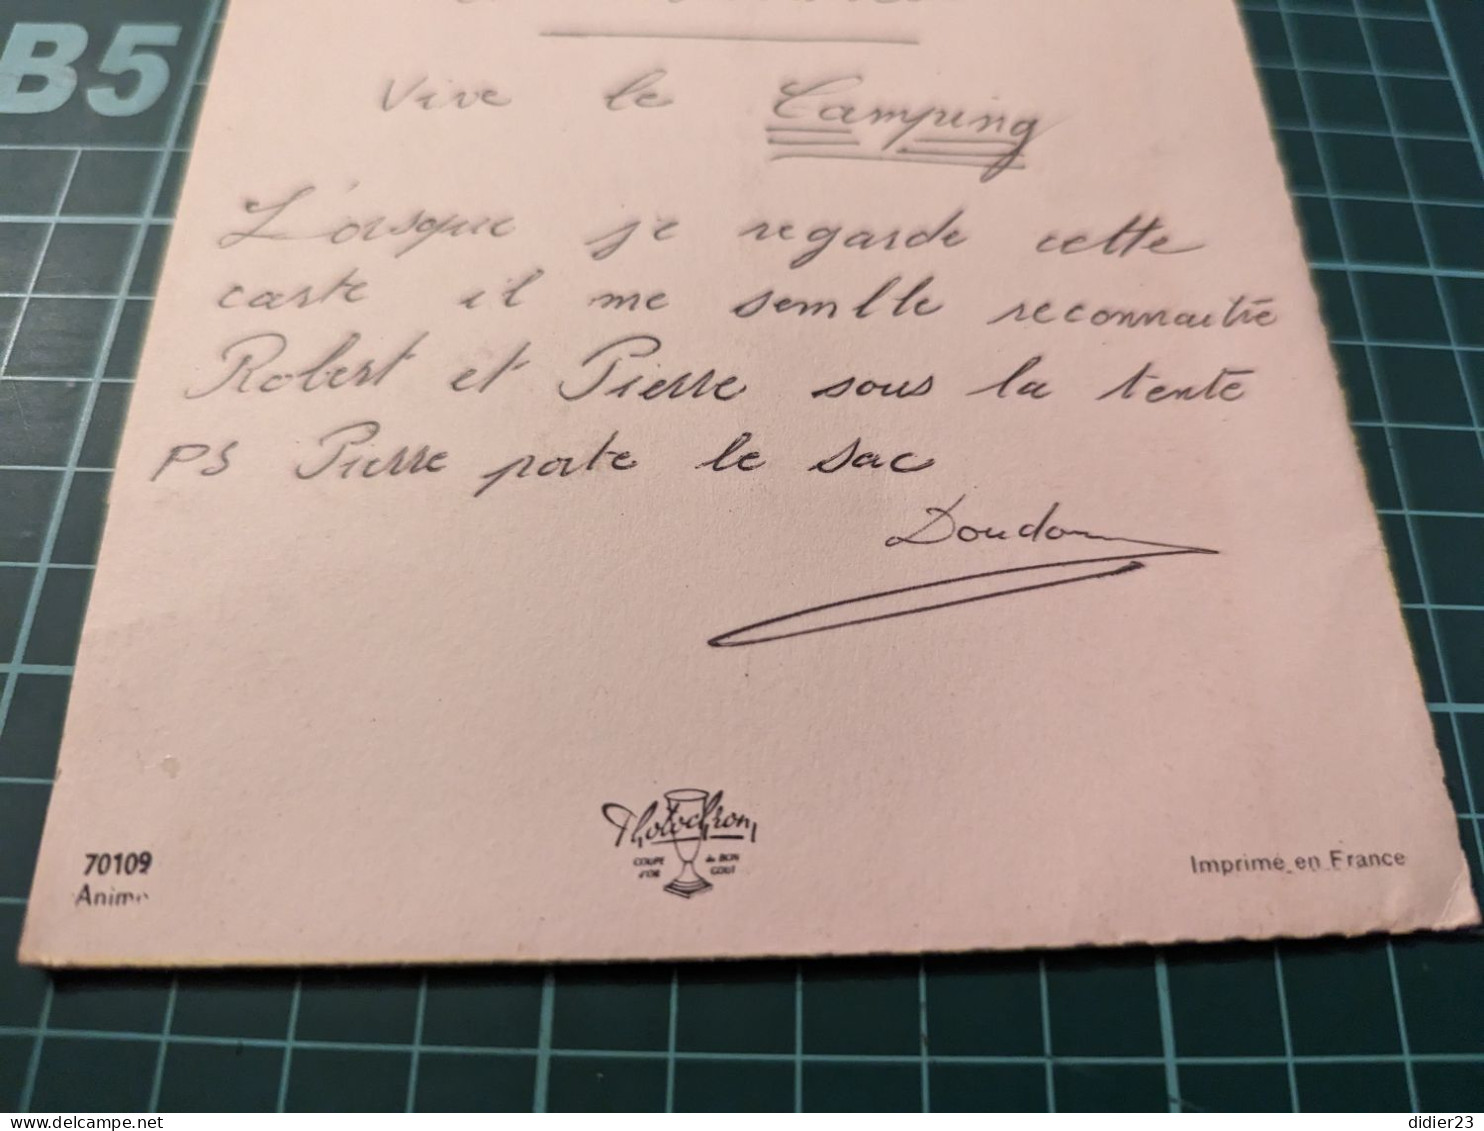 B5
Vive le Camping
L'orsque je regarde cette
carte il me semble reconnaitre
Robert et Pierre sous la tente
PS Pierre porte le sac
Doudou
Photochrom
COUPE D'OR du BON GOUT
70109
Anime
Imprimé en France
delcampe.net
didier23